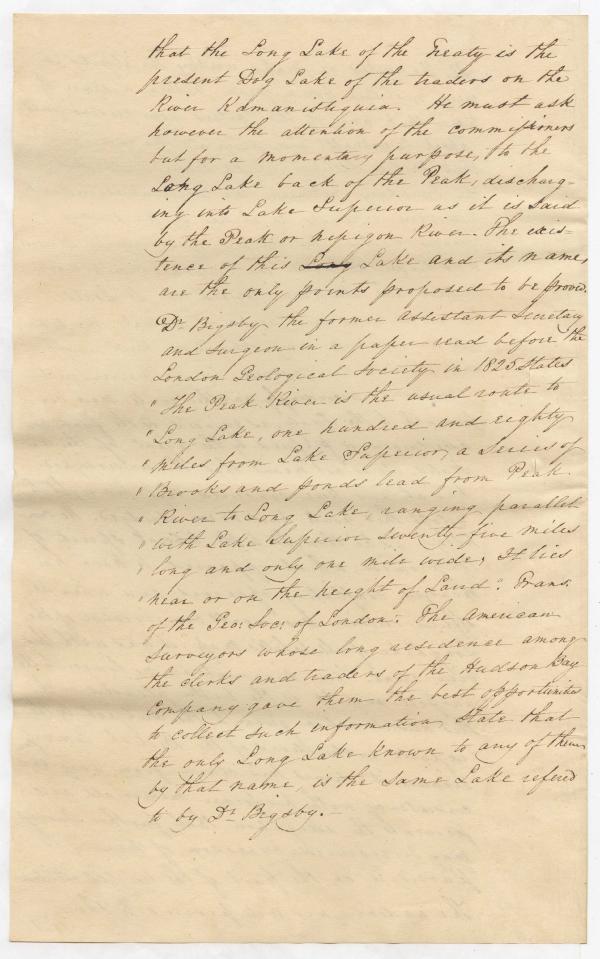 that the Long Lake of the Treaty is the
present Dog Lake of the traders on the
River Kamanistiquia. He must ask
however the attention of the commissioners
but for a momentary purpose, to the
Long Lake back of the Peak, discharg-
ing into Lake Superior as it is said
by the Peak or nipigon River. The exis-
tence of this Long Lake and its name,
are the only points proposed to be proved.
Dr Bigsby the former Assistant Secretary
and Surgeon in a paper read before the
London Geological Society in 1825. States
" The Peak River is the usual route to
" Long Lake, one hundred and eighty
" miles from Lake Superior, a Series of
" Brooks and ponds lead from Peak
" River to Long Lake, ranging parallel
" with Lake Superior seventy-five miles
" long and only one mile wide, It lies
" near or on the height of Land". Trans:
of the Geo: Soc: of London. The American
Surveyors whose long residence among
the clerks and traders of the Hudson Bay
Company gave them the best opportunities
to collect such information, state that
the only Long Lake known to any of them
by that name, is the same Lake refered
to by Dr Bigsby.-